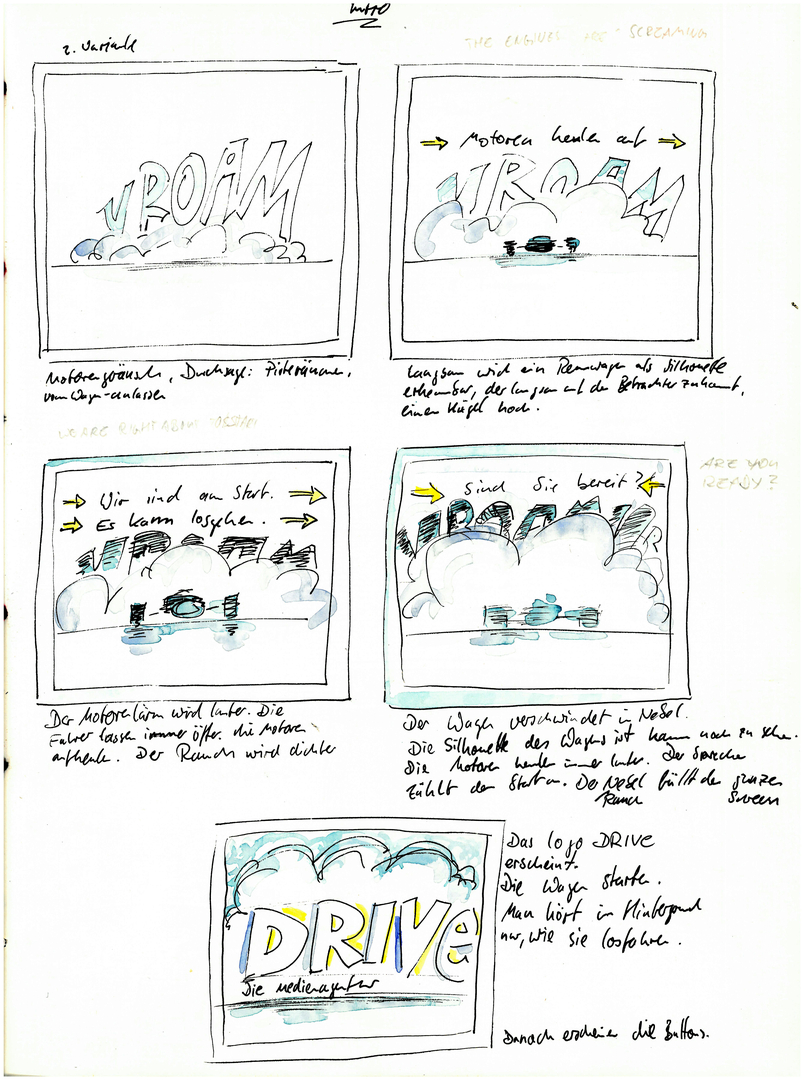 INTRO
2. Variante
THE ENGINES ARE SCREAMING
VROAM
Motoren heulen auf
VROAM
Motorengeräusch, Durchsage:
vom Wagen-anlassen
Langsam wird ein Rennwagen als Silhouette
erkennbar, der langsam auf den Betrachter zukommt,
einen Hügel hoch.
WE ARE RIGHT ABOUT
Wir sind am Start.
Es kann losgehen.
VROAM
Sind Sie bereit?
ARE YOU
READY?
VROAM
Der Motorenlärm wird lauter. Die
Fahrer lassen immer öfter die Motoren
aufheulen. Der Rauch wird dichter
Der Wagen verschwindet im Nebel.
Die Silhouette des Wagens ist kaum noch zu sehen.
Die Motoren heulen immer lauter. Der Sprecher
zählt den Start an. Der Nebel füllt den ganzen
Rauch Screen
DRIVE
Die Medienagentur
Das Logo DRIVE
erscheint.
Die Wagen starten.
Man hört im Hintergrund
nur, wie sie losfahren.
Danach erscheinen die Buttons.